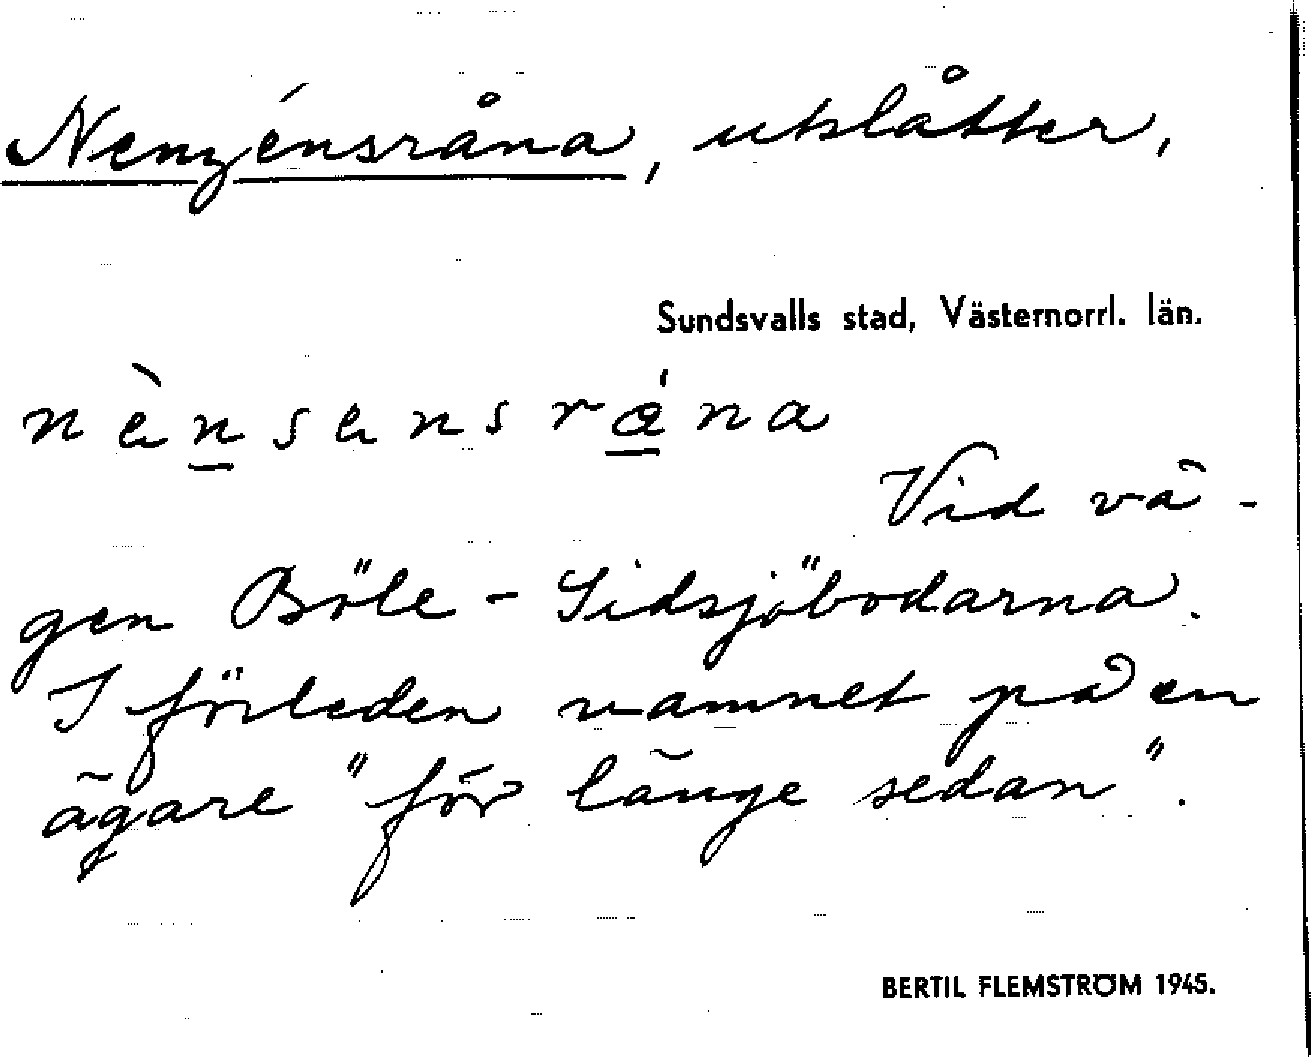 Nenzénsråna, utslåtter,
Sundsvalls stad, Västernorrl. län.
nènsensrána
Vid vä-
gen Böle - Sidsjöbodarna.
I förleden namnet på en
ägare "för länge sedan".
BERTIL FLEMSTRÖM 1945.